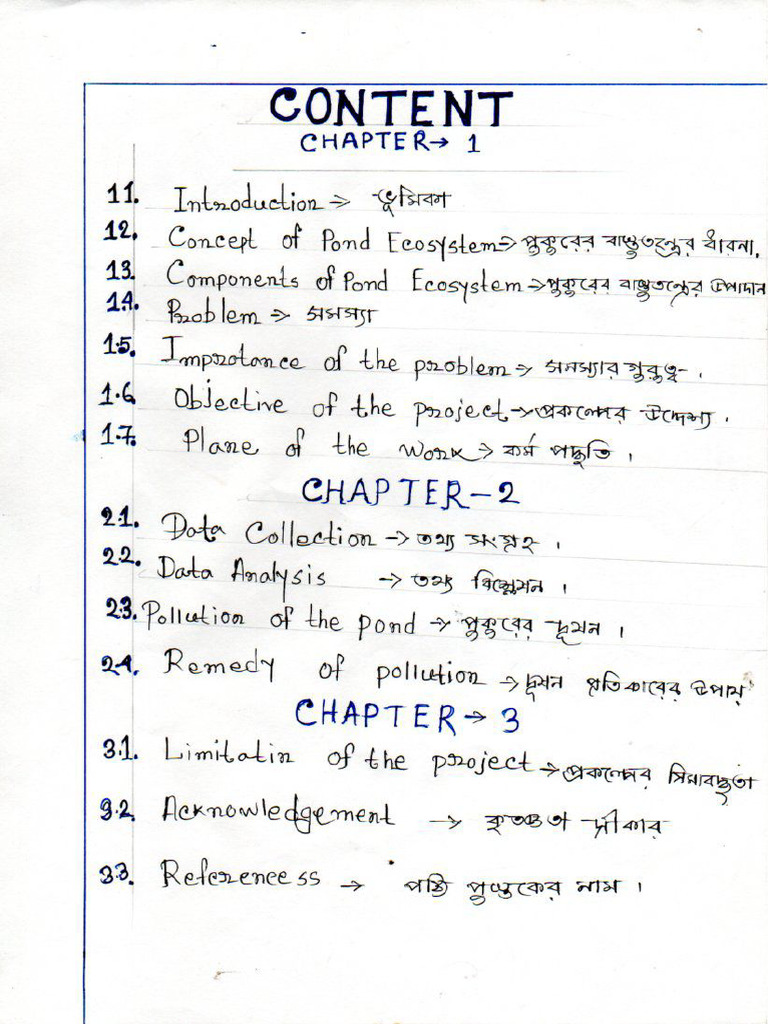 CONTENT
CHAPTER→ 1
1.1. Introduction → ভূমিকা
1.2. Concept of Pond Ecosystem → পুকুরের বাস্তুতন্ত্রের ধারনা.
1.3. Components of Pond Ecosystem → পুকুরের বাস্তুতন্ত্রের উপাদান
1.4. Problem → সমস্যা
1.5. Improtance of the problem → সমস্যার গুরুত্ব.
1.6. Objective of the project → প্রকল্পের উদ্দেশ্য.
1.7. Plane of the work → কর্ম পদ্ধতি।
CHAPTER-2
2.1. Data Collection → তথ্য সংগ্রহ।
2.2. Data Analysis → তথ্য বিশ্লেষন।
2.3. Pollution of the pond → পুকুরের দূষন।
2.4. Remedy of pollution → দূষন প্রতিকারের উপায়
CHAPTER→ 3
3.1. Limitatin of the project → প্রকল্পের সিমাবদ্ধতা
3.2. Acknowledgement → কৃতজ্ঞতা স্বীকার
3.3. Referencess → পুস্তকের নাম।